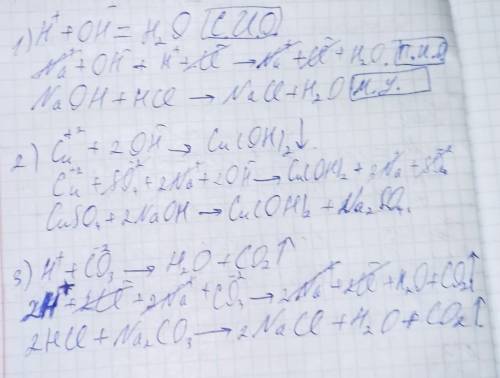 1) H⁺ + OH⁻ = H₂O С.И.О
Na⁺ + OH⁻ + H⁺ + Cl⁻ → Na⁺ + Cl⁻ + H₂O. П.И.О
NaOH + HCl → NaCl + H₂O М.У.
2) Cu⁺² + 2OH⁻ → Cu(OH)₂↓
Cu⁺² + SO₄⁻² + 2Na⁺ + 2OH⁻ → Cu(OH)₂ + 2Na⁺ + SO₄⁻²
CuSO₄ + 2NaOH → Cu(OH)₂ + Na₂SO₄.
3) H⁺ + CO₃⁻² → H₂O + CO₂↑
2H⁺ + 2Cl⁻ + 2Na⁺ + CO₃⁻² → 2Na⁺ + 2Cl⁻ + H₂O + CO₂↑
2HCl + Na₂CO₃ → 2NaCl + H₂O + CO₂↑